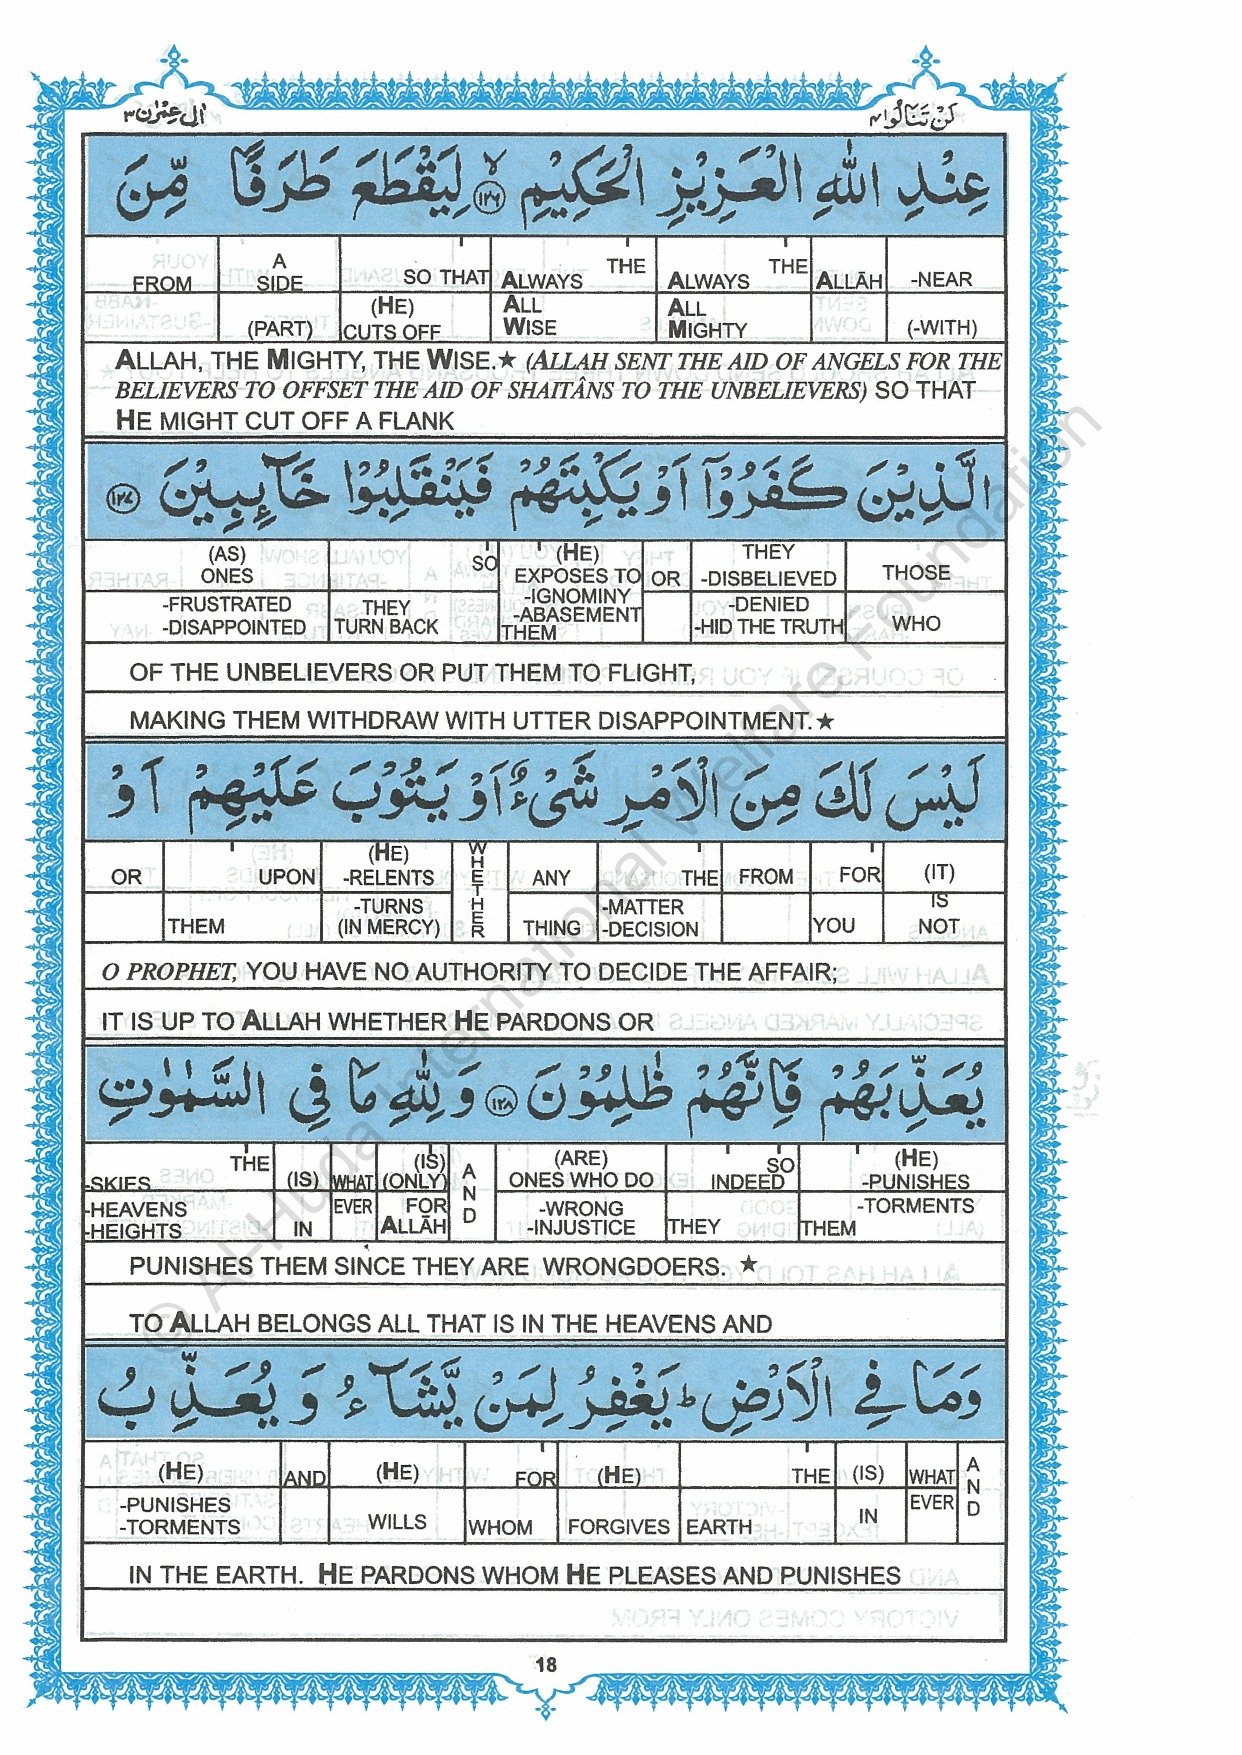 لَنْ تَنَالُوا ٤
اٰلِ عِمْرٰن ٣
عِنْدِ اللّٰهِ الْعَزِيْزِ الْحَكِيْمِ ﴿١٢٦﴾ۙ لِيَقْطَعَ طَرَفًا مِّنَ
FROM | A SIDE | SO THAT | THE ALWAYS | THE ALWAYS | ALLĀH | -NEAR
(PART) | (HE) CUTS OFF | ALL WISE | ALL MIGHTY | (-WITH)
ALLAH, THE MIGHTY, THE WISE.★ (ALLAH SENT THE AID OF ANGELS FOR THE
BELIEVERS TO OFFSET THE AID OF SHAITÂNS TO THE UNBELIEVERS) SO THAT
HE MIGHT CUT OFF A FLANK
الَّذِيْنَ كَفَرُوْٓا اَوْ يَكْبِتَهُمْ فَيَنْقَلِبُوْا خَآئِبِيْنَ ﴿١٢٧﴾
(AS) ONES | SO | (HE) EXPOSES TO | OR | THEY -DISBELIEVED | THOSE
-FRUSTRATED -DISAPPOINTED | THEY TURN BACK | -IGNOMINY -ABASEMENT THEM | -DENIED -HID THE TRUTH | WHO
OF THE UNBELIEVERS OR PUT THEM TO FLIGHT,
MAKING THEM WITHDRAW WITH UTTER DISAPPOINTMENT.★
لَيْسَ لَكَ مِنَ الْاَمْرِ شَيْءٌ اَوْ يَتُوْبَ عَلَيْهِمْ اَوْ
OR | UPON | (HE) -RELENTS | WHETHER | ANY | THE | FROM | FOR | (IT) IS
THEM | -TURNS (IN MERCY) | THING | -MATTER -DECISION | YOU | NOT
O PROPHET, YOU HAVE NO AUTHORITY TO DECIDE THE AFFAIR;
IT IS UP TO ALLAH WHETHER HE PARDONS OR
يُعَذِّبَهُمْ فَاِنَّهُمْ ظٰلِمُوْنَ ﴿١٢٨﴾ وَلِلّٰهِ مَا فِي السَّمٰوٰتِ
THE -SKIES | (IS) | WHAT | (IS) (ONLY) | AND | (ARE) ONES WHO DO | SO INDEED | (HE) -PUNISHES
-HEAVENS -HEIGHTS | IN | EVER | FOR ALLĀH | -WRONG -INJUSTICE | THEY | -TORMENTS THEM
PUNISHES THEM SINCE THEY ARE WRONGDOERS. ★
TO ALLAH BELONGS ALL THAT IS IN THE HEAVENS AND
وَمَا فِي الْاَرْضِ ؕ يَغْفِرُ لِمَنْ يَّشَآءُ وَيُعَذِّبُ
(HE) | AND | (HE) | FOR | (HE) | THE | (IS) | WHAT | AND
-PUNISHES -TORMENTS | WILLS | WHOM | FORGIVES | EARTH | IN | EVER
IN THE EARTH. HE PARDONS WHOM HE PLEASES AND PUNISHES
18
© Al-Huda International Welfare Foundation